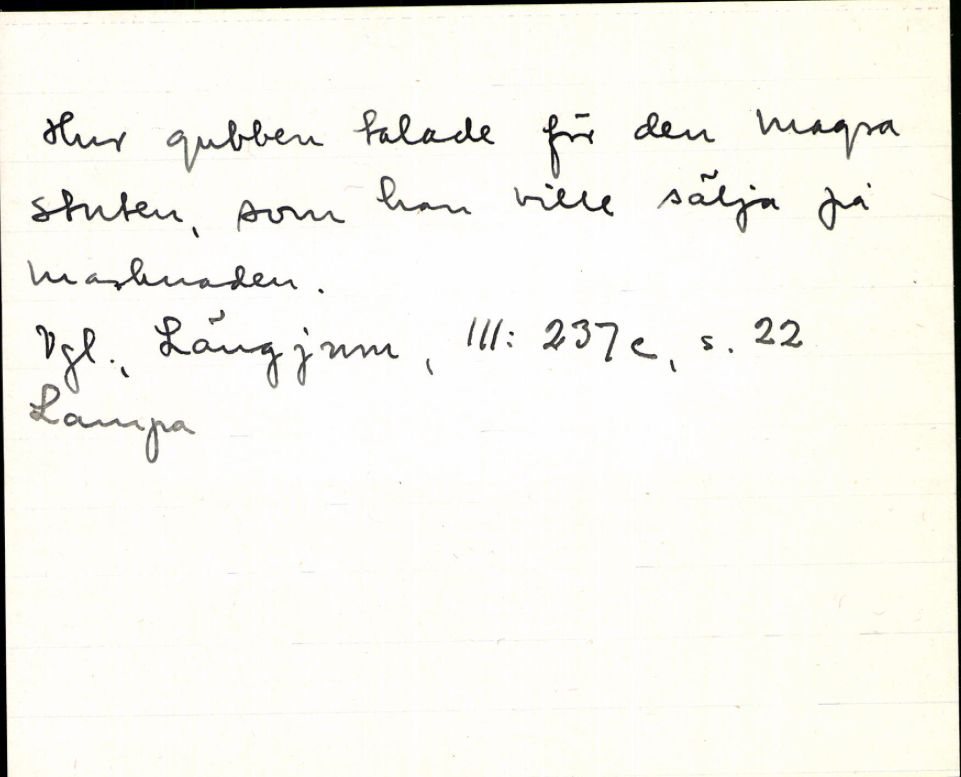 Hur gubben talade för den magra
stuten, som han ville sälja på
marknaden.
Vgl., Långjum, III: 237c, s. 22
Lampa